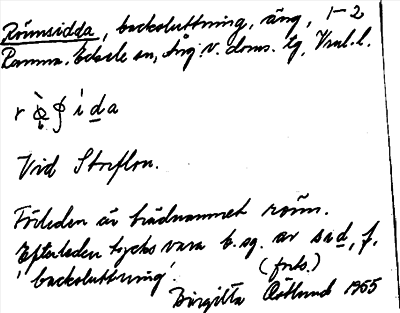 Rönnsidda, backsluttning, äng, 1-2
Ramma. Edsele sn, Ång. v. doms. tg, Vnl. l.
r i d a
Vid Storflon.
Förleden är trädnamnet rönn.
Efterleden tycks vara b. sg. av sid, f.
'backsluttning'. (forts.)
Birgitta Östlund 1965